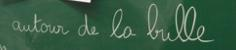 autour de la bulle